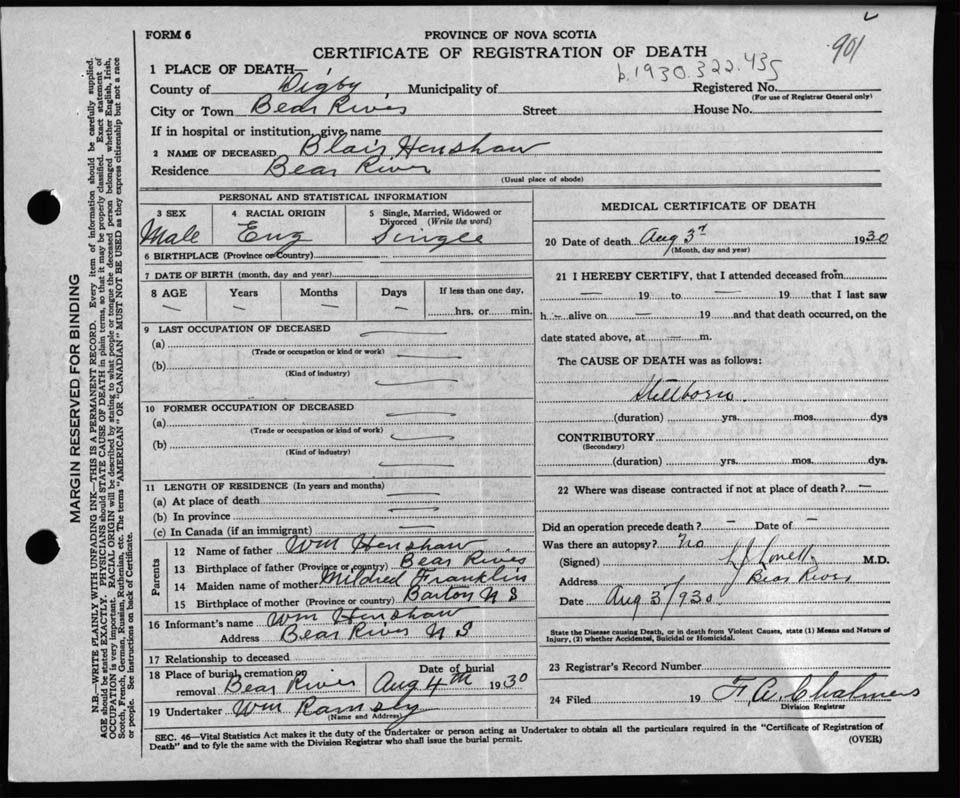 901
FORM 6
PROVINCE OF NOVA SCOTIA
CERTIFICATE OF REGISTRATION OF DEATH
b.1930.322.435
1 PLACE OF DEATH—
County of Digby, Municipality of Registered No.
(For use of Registrar General only)
City or Town Bear River Street House No.
If in hospital or institution, give name
2 NAME OF DECEASED Blair Henshaw
Residence Bear River
(Usual place of abode)
PERSONAL AND STATISTICAL INFORMATION
3 SEX 4 RACIAL ORIGIN 5 Single, Married, Widowed or Divorced (Write the word)
Male Eng Single
6 BIRTHPLACE (Province or Country)
7 DATE OF BIRTH (month, day and year)
8 AGE Years Months Days If less than one day,
— — — — hrs. or min.
9 LAST OCCUPATION OF DECEASED
(a)
(Trade or occupation or kind or work)
(b)
(Kind of industry)
10 FORMER OCCUPATION OF DECEASED
(a)
(Trade or occupation or kind of work)
(b)
(Kind of industry)
11 LENGTH OF RESIDENCE (In years and months)
(a) At place of death
(b) In province
(c) In Canada (if an immigrant)
Parents
12 Name of father Wm Henshaw
13 Birthplace of father (Province or country) Bear River
14 Maiden name of mother Mildred Franklin
15 Birthplace of mother (Province or country) Barton N S
16 Informant's name Wm Henshaw
Address Bear River N S
17 Relationship to deceased
18 Place of burial, cremation or removal Bear River Date of burial Aug 4th 1930
19 Undertaker Wm Ramsey
(Name and Address)
MEDICAL CERTIFICATE OF DEATH
20 Date of death Aug 3rd 1930
(Month, day and year)
21 I HEREBY CERTIFY, that I attended deceased from
— 19 to — 19 that I last saw
h — alive on — 19 and that death occurred, on the
date stated above, at — m.
The CAUSE OF DEATH was as follows:
Stillborn.
(duration) yrs. mos. dys
CONTRIBUTORY
(Secondary)
(duration) yrs. mos. dys.
22 Where was disease contracted if not at place of death? —
Did an operation precede death? — Date of —
Was there an autopsy? No
(Signed) Lovett M.D.
Address Bear River
Date Aug 3/930
State the Disease causing Death, or in death from Violent Causes, state (1) Means and Nature of
Injury, (2) whether Accidental, Suicidal or Homicidal.
23 Registrar's Record Number
24 Filed 19 F. A. Chalmers
Division Registrar
SEC. 46—Vital Statistics Act makes it the duty of the Undertaker or person acting as Undertaker to obtain all the particulars required in the "Certificate of Registration of
Death" and to fyle the same with the Division Registrar who shall issue the burial permit.
(OVER)
MARGIN RESERVED FOR BINDING
N.B.—WRITE PLAINLY WITH UNFADING INK—THIS IS A PERMANENT RECORD. Every item of information should be carefully supplied.
AGE should be stated EXACTLY. PHYSICIANS should STATE CAUSE OF DEATH in plain terms, so that it may be properly classified. Exact statement of
OCCUPATION is very important. RACIAL ORIGIN will be described by stating to what people or tongue the deceased person belonged whether English, Irish,
Scotch, French, German, Russian, Ruthenian, etc. The terms "AMERICAN" OR "CANADIAN" MUST NOT BE USED as they express citizenship but not a race
or people. See instructions on back of Certificate.